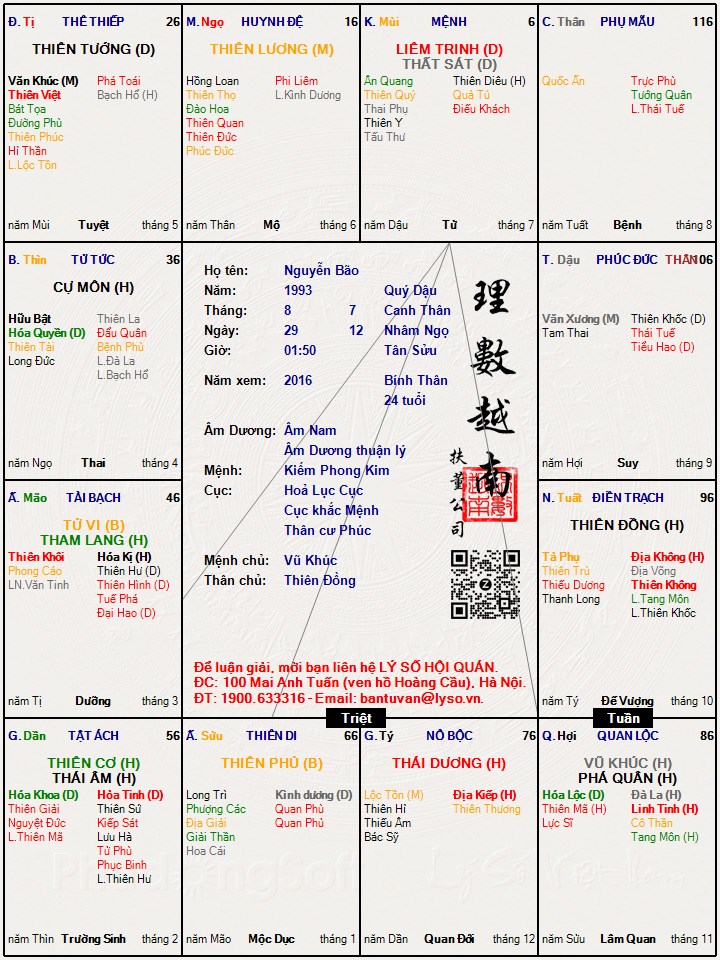 Đ. Tị THÊ THIẾP 26
THIÊN TƯỚNG (D)
Văn Khúc (M) Phá Toái
Thiên Việt Bạch Hổ (H)
Bát Tọa
Đường Phù
Thiên Phúc
Hỉ Thần
L.Lộc Tồn
năm Mùi Tuyệt tháng 5
M. Ngọ HUYNH ĐỆ 16
THIÊN LƯƠNG (M)
Hồng Loan Phi Liêm
Thiên Thọ L.Kình Dương
Đào Hoa
Thiên Quan
Thiên Đức
Phúc Đức
năm Thân Mộ tháng 6
K. Mùi MỆNH 6
LIÊM TRINH (D)
THẤT SÁT (D)
Ân Quang Thiên Diêu (H)
Thiên Quý Quả Tú
Thai Phụ Điếu Khách
Thiên Y
Tấu Thư
năm Dậu Tử tháng 7
C. Thân PHỤ MẪU 116
Quốc Ấn Trực Phù
Tướng Quân
L.Thái Tuế
năm Tuất Bệnh tháng 8
B. Thìn TỬ TỨC 36
CỰ MÔN (H)
Hữu Bật Thiên La
Hóa Quyền (D) Đẩu Quân
Thiên Tài Bệnh Phù
Long Đức L.Đà La
L.Bạch Hổ
năm Ngọ Thai tháng 4
Họ tên: Nguyễn Bão
Năm: 1993 Quý Dậu
Tháng: 8 7 Canh Thân
Ngày: 29 12 Nhâm Ngọ
Giờ: 01:50 Tân Sửu
Năm xem: 2016 Bính Thân
24 tuổi
Âm Dương: Âm Nam
Âm Dương thuận lý
Mệnh: Kiếm Phong Kim
Cục: Hoả Lục Cục
Cục khắc Mệnh
Thân cư Phúc
Mệnh chủ: Vũ Khúc
Thân chủ: Thiên Đồng
理數越南
扶董公司
Để luận giải, mời bạn liên hệ LÝ SỐ HỘI QUÁN.
ĐC: 100 Mai Anh Tuấn (ven hồ Hoàng Cầu), Hà Nội.
ĐT: 1900.633316 - Email: bantuvan@lyso.vn.
T. Dậu PHÚC ĐỨC THÂN 106
Văn Xương (M) Thiên Khốc (D)
Tam Thai Thái Tuế
Tiểu Hao (D)
năm Hợi Suy tháng 9
Ấ. Mão TÀI BẠCH 46
TỬ VI (B)
THAM LANG (H)
Thiên Khôi Hóa Kị (H)
Phong Cáo Thiên Hư (D)
LN.Văn Tinh Thiên Hình (D)
Tuế Phá
Đại Hao (D)
năm Tị Dưỡng tháng 3
N. Tuất ĐIỀN TRẠCH 96
THIÊN ĐỒNG (H)
Tả Phụ Địa Không (H)
Thiên Trù Địa Võng
Thiếu Dương Thiên Không
Thanh Long L.Tang Môn
L.Thiên Khốc
năm Tý Đế Vượng tháng 10
Triệt
Tuần
G. Dần TẬT ÁCH 56
THIÊN CƠ (H)
THÁI ÂM (H)
Hóa Khoa (D) Hỏa Tinh (D)
Thiên Giải Thiên Sứ
Nguyệt Đức Kiếp Sát
L.Thiên Mã Lưu Hà
Tử Phù
Phục Binh
L.Thiên Hư
năm Thìn Trường Sinh tháng 2
Ấ. Sửu THIÊN DI 66
THIÊN PHỦ (B)
Long Trì Kình dương (D)
Phượng Các Quan Phủ
Địa Giải Quan Phủ
Giải Thần
Hoa Cái
năm Mão Mộc Dục tháng 1
G. Tý NÔ BỘC 76
THÁI DƯƠNG (H)
Lộc Tồn (M) Địa Kiếp (H)
Thiên Hỉ Thiên Thương
Thiếu Âm
Bác Sỹ
năm Dần Quan Đới tháng 12
Q. Hợi QUAN LỘC 86
VŨ KHÚC (H)
PHÁ QUÂN (H)
Hóa Lộc (D) Đà La (H)
Thiên Mã (H) Linh Tinh (H)
Lực Sĩ Cô Thần
Tang Môn (H)
năm Sửu Lâm Quan tháng 11